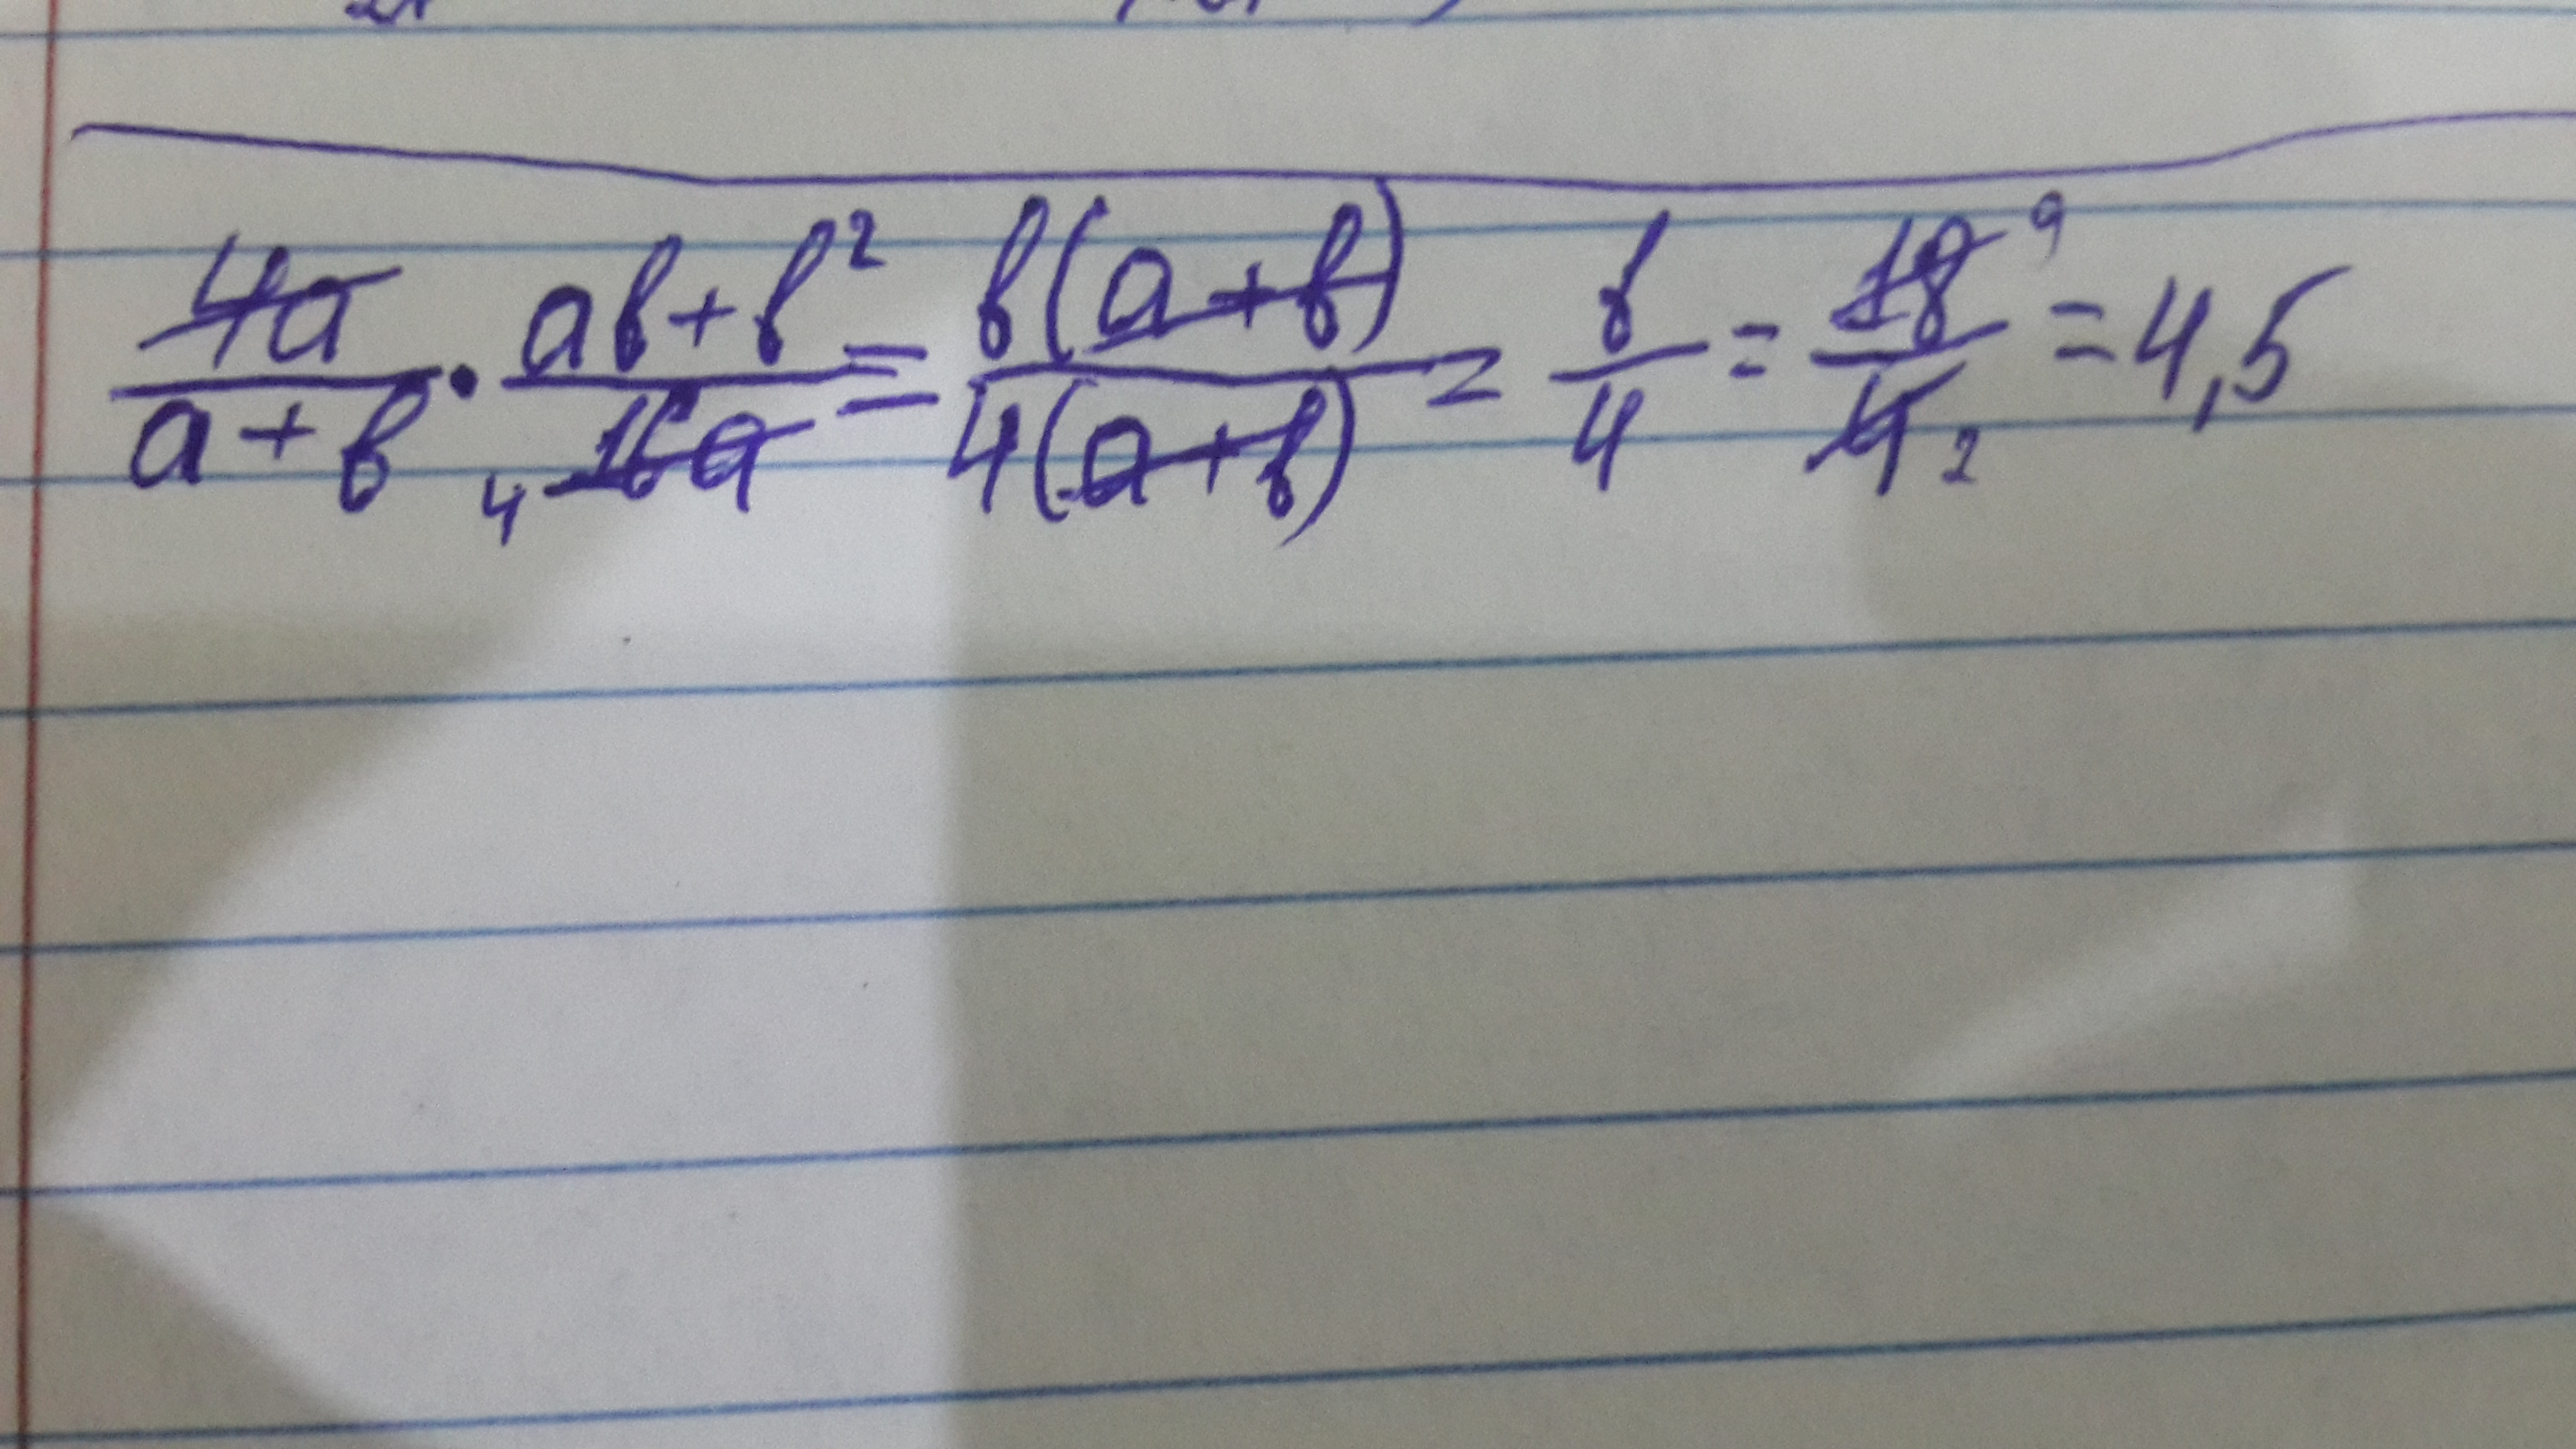 4a/a+b · ab+b²/16a 4 = b(a+b)/4(a+b) = b/4 = 18 9/4 2 = 4,5